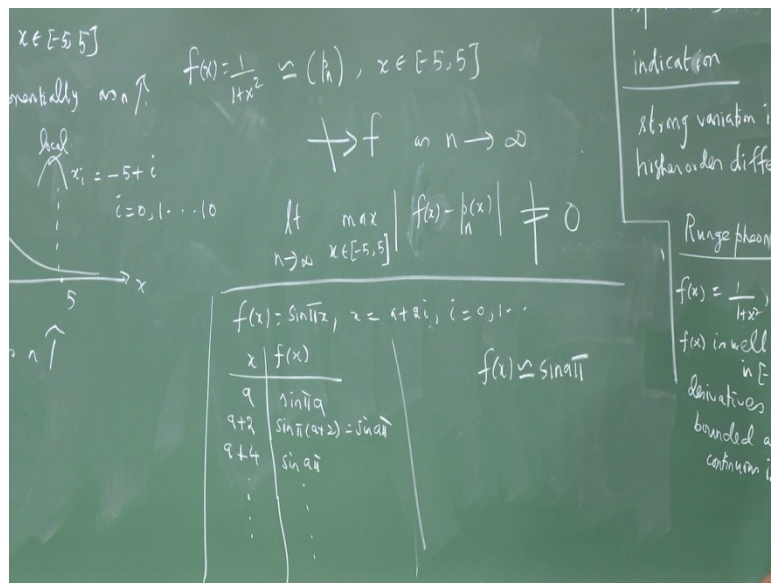 x ∈ [-5, 5]
as n ↑
local
x_i = -5 + i
i = 0, 1 ... 10
x
5
n ↑
f(x) = 1/(1+x²) ≃ (p_n), x ∈ [-5, 5]
↛ f as n → ∞
lt n→∞ max x∈[-5,5] | f(x) - p_n(x) | ≠ 0
f(x) = sin πx, x = a + 2i, i = 0, 1 ..
x f(x)
a sin πa
a+2 sin π(a+2) = sin aπ
a+4 sin aπ
f(x) ≃ sin aπ
indication
strong variation i
higher order diffe
Runge pheon
f(x) = 1/(1+x²),
f(x) is well
in [-
derivatives
bounded a
continuous i